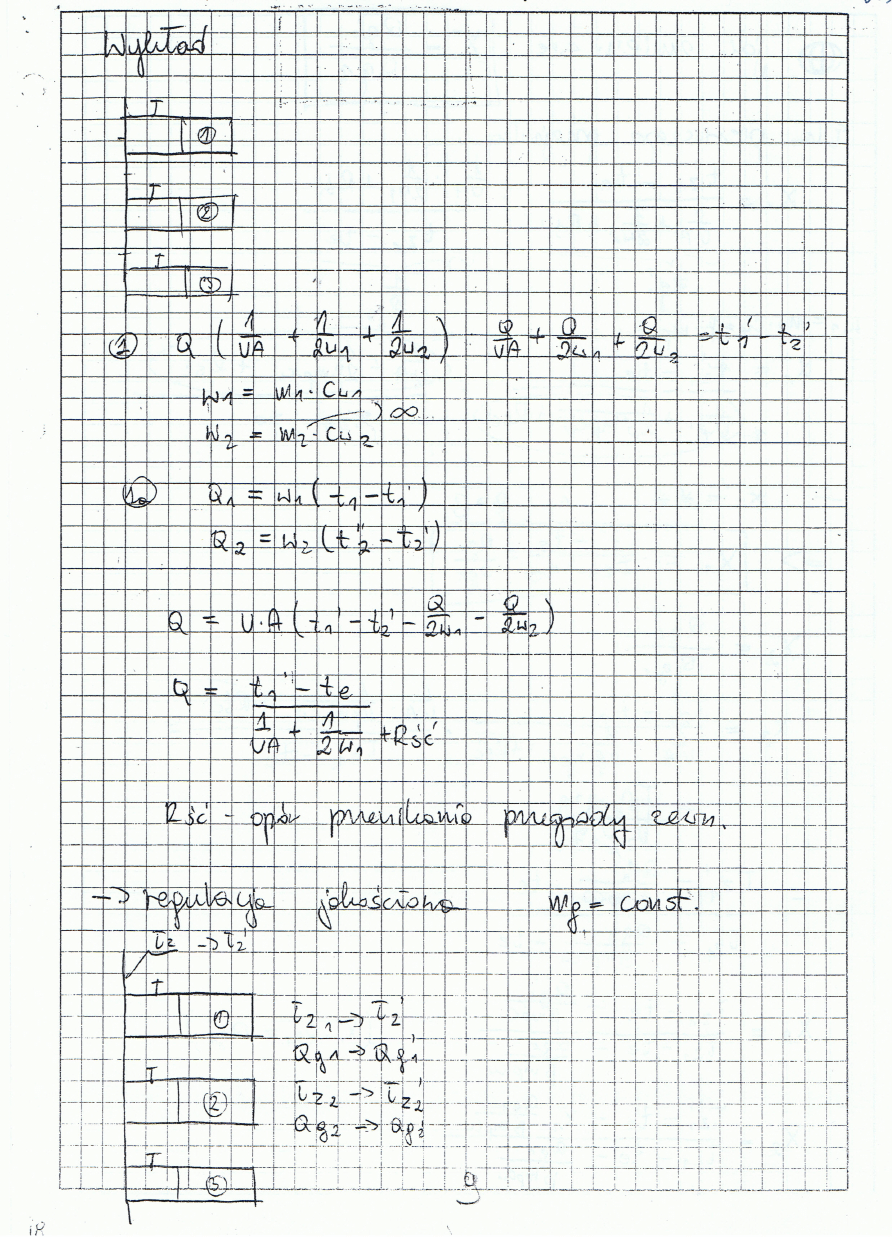 Wykład
①
②
③
① Q ( 1/UA + 1/2w₁ + 1/2w₂ )   Q/UA + Q/2w₁ + Q/2w₂ = t₁' - t₂'
w₁ = m₁ · Cw₁
w₂ = m₂ · Cw₂ ) ∞
①ₐ Q₁ = w₁ ( t₁ - t₁' )
Q₂ = w₂ ( t₂'' - t₂' )
Q = U·A ( t₁' - t₂' - Q/2w₁ - Q/2w₂ )
Q = (t₁' - te) / (1/UA + 1/2w₁ + Rść)
Rść - opór przenikania przegrody zewn.
-> regulacja jakościowa mg = const.
τz -> τz'
① τz₁ -> τz'
Qg₁ -> Qg₁'
② τz₂ -> τz₂'
Qg₂ -> Qg₂'
③
9